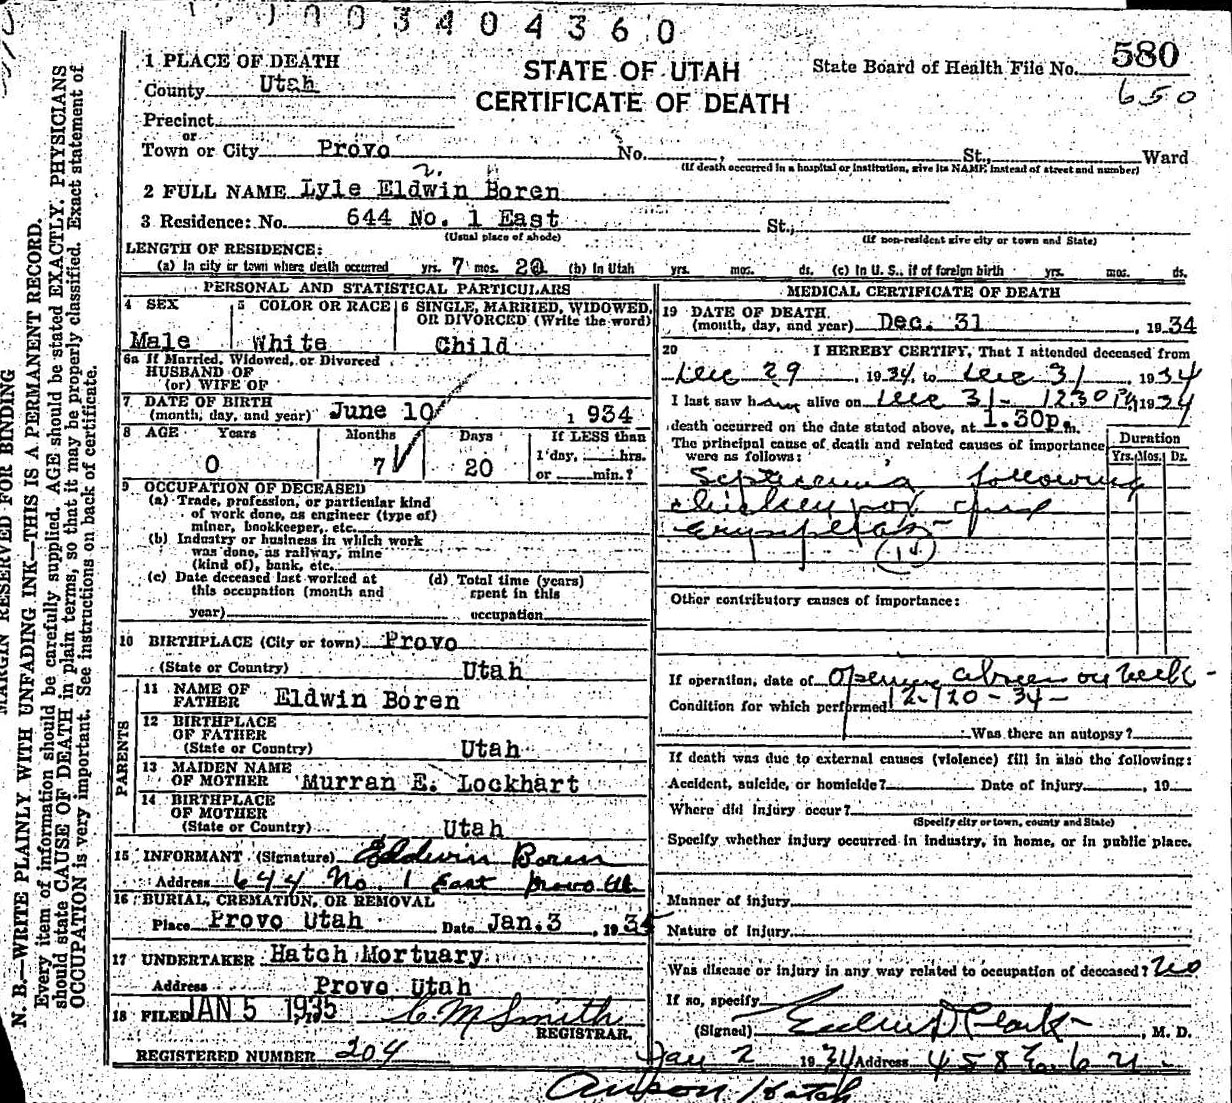 1003404360
580
650
STATE OF UTAH
CERTIFICATE OF DEATH
State Board of Health File No.
1 PLACE OF DEATH
County Utah
Precinct
or
Town or City Provo No. , St., Ward
(If death occurred in a hospital or institution, give its NAME instead of street and number)
2 FULL NAME Lyle Eldwin Boren
3 Residence: No. 644 No. 1 East St.,
(Usual place of abode) (If non-resident give city or town and State)
LENGTH OF RESIDENCE:
(a) In city or town where death occurred yrs. 7 mos. 20 (b) In Utah yrs. mos. ds. (c) In U. S., if of foreign birth yrs. mos. ds.
PERSONAL AND STATISTICAL PARTICULARS
4 SEX
Male
5 COLOR OR RACE
White
6 SINGLE, MARRIED, WIDOWED, OR DIVORCED (Write the word)
Child
6a If Married, Widowed, or Divorced
HUSBAND OF
(or) WIFE OF
7 DATE OF BIRTH
(month, day, and year) June 10 1934
8 AGE Years Months Days If LESS than
0 7 20 1 day, hrs.
or min.?
9 OCCUPATION OF DECEASED
(a) Trade, profession, or particular kind
of work done, as engineer (type of)
miner, bookkeeper, etc.
(b) Industry or business in which work
was done, as railway, mine
(kind of), bank, etc.
(c) Date deceased last worked at
this occupation (month and
year)
(d) Total time (years)
spent in this
occupation
10 BIRTHPLACE (City or town) Provo
(State or Country) Utah
PARENTS
11 NAME OF
FATHER Eldwin Boren
12 BIRTHPLACE
OF FATHER
(State or Country) Utah
13 MAIDEN NAME
OF MOTHER Murran E. Lockhart
14 BIRTHPLACE
OF MOTHER
(State or Country) Utah
15 INFORMANT (Signature) Eldwin Boren
Address 644 No. 1 East Provo Ut.
16 BURIAL, CREMATION, OR REMOVAL
Place Provo Utah Date Jan. 3, 1935
17 UNDERTAKER Hatch Mortuary
Address Provo Utah
18 FILED JAN 5 1935 C M Smith
REGISTRAR.
REGISTERED NUMBER 204
MEDICAL CERTIFICATE OF DEATH
19 DATE OF DEATH
(month, day, and year) Dec. 31, 1934
20 I HEREBY CERTIFY, That I attended deceased from
Dec 29, 1934, to Dec 31, 1934
I last saw him alive on Dec 31- 12.30 PM, 1934
death occurred on the date stated above, at 1.30p.m.
The principal cause of death and related causes of importance
were as follows:
Duration
Yrs. Mos. Ds.
Septicemia following
chickenpox and
Erysipelas-
Other contributory causes of importance:
If operation, date of opening abscess on neck -
Condition for which performed 12-20-34-
Was there an autopsy?
If death was due to external causes (violence) fill in also the following:
Accident, suicide, or homicide? Date of injury , 19
Where did injury occur?
(Specify city or town, county and State)
Specify whether injury occurred in industry, in home, or in public place.
Manner of injury
Nature of injury
Was disease or injury in any way related to occupation of deceased? No
If so, specify
(Signed) Clark , M. D.
Jan 2 1934 Address 458
Anson Hatch
MARGIN RESERVED FOR BINDING
N. B.—WRITE PLAINLY WITH UNFADING INK—THIS IS A PERMANENT RECORD.
Every item of information should be carefully supplied. AGE should be stated EXACTLY. PHYSICIANS
should state CAUSE OF DEATH in plain terms, so that it may be properly classified. Exact statement of
OCCUPATION is very important. See instructions on back of certificate.